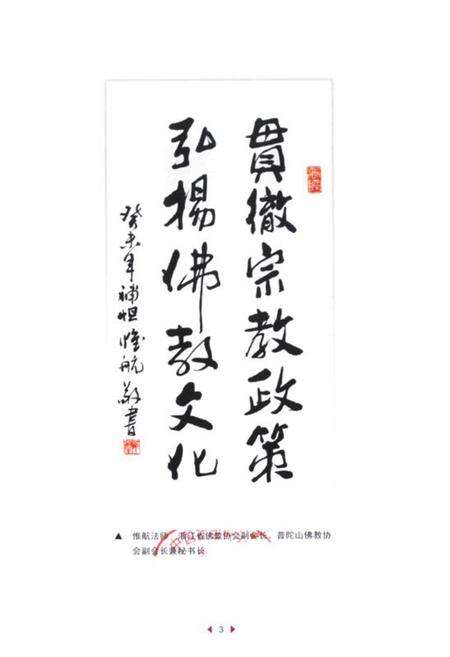 貫徹宗教政策
弘揚佛教文化
癸未年補怛惟航敬書
▲ 惟航法师 浙江省佛教协会副会长、普陀山佛教协
会副会长兼秘书长
3